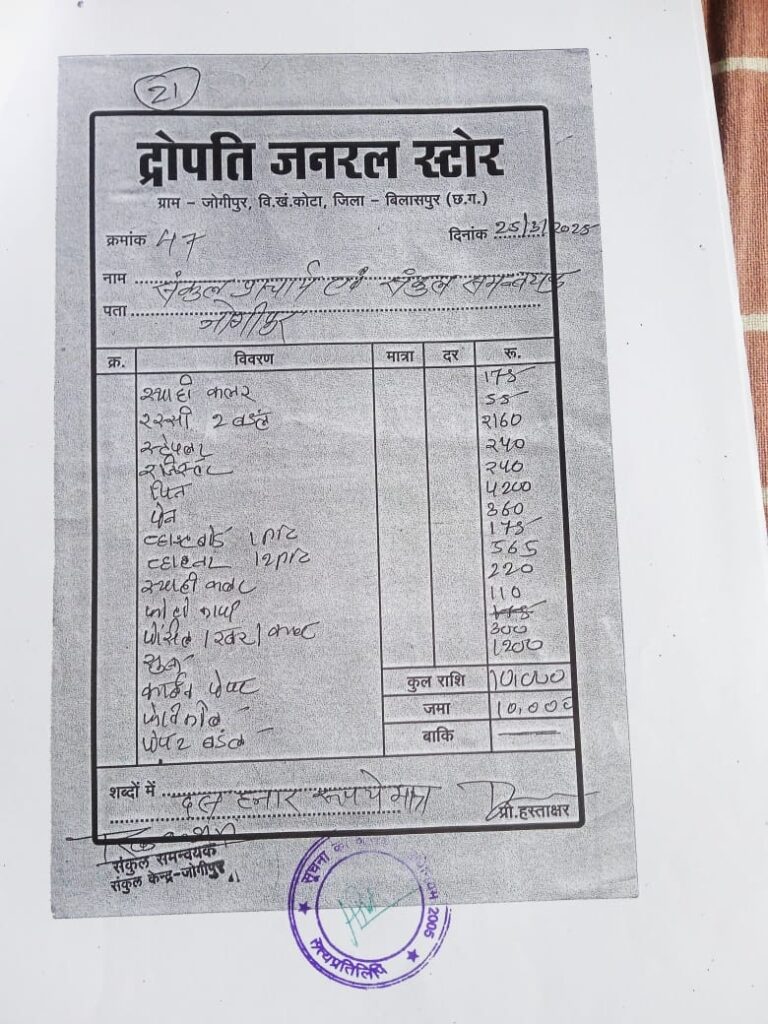 21
द्रोपति जनरल स्टोर
ग्राम - जोगीपुर, वि.खं.कोटा, जिला - बिलासपुर (छ.ग.)
क्रमांक 47 दिनांक 25/3/2025
नाम संकुल प्राचार्य एवं संकुल समन्वयक
पता जोगीपुर
क्र. विवरण मात्रा दर रू.
स्याही कलर 175
रस्सी 2 बंडल 55
स्टेपलर 2160
रजिस्टर 240
पिन 240
पेन 4200
व्हाइट बोर्ड 1 360
व्हाइटनर 12 175
स्याही कलर 565
फोटो कापी 220
पेंसिल / रबर / कटर 110
175
300
कार्बन पेपर 1200
पेपर 2 बंडल
कुल राशि 10,000
जमा 10,000
बाकि
शब्दों में दस हजार रूपये मात्र
प्रो.हस्ताक्षर
संकुल समन्वयक
संकुल केन्द्र-जोगीपुर
सूचना का अधिकार अधिनियम 2005
सत्यप्रतिलिपि